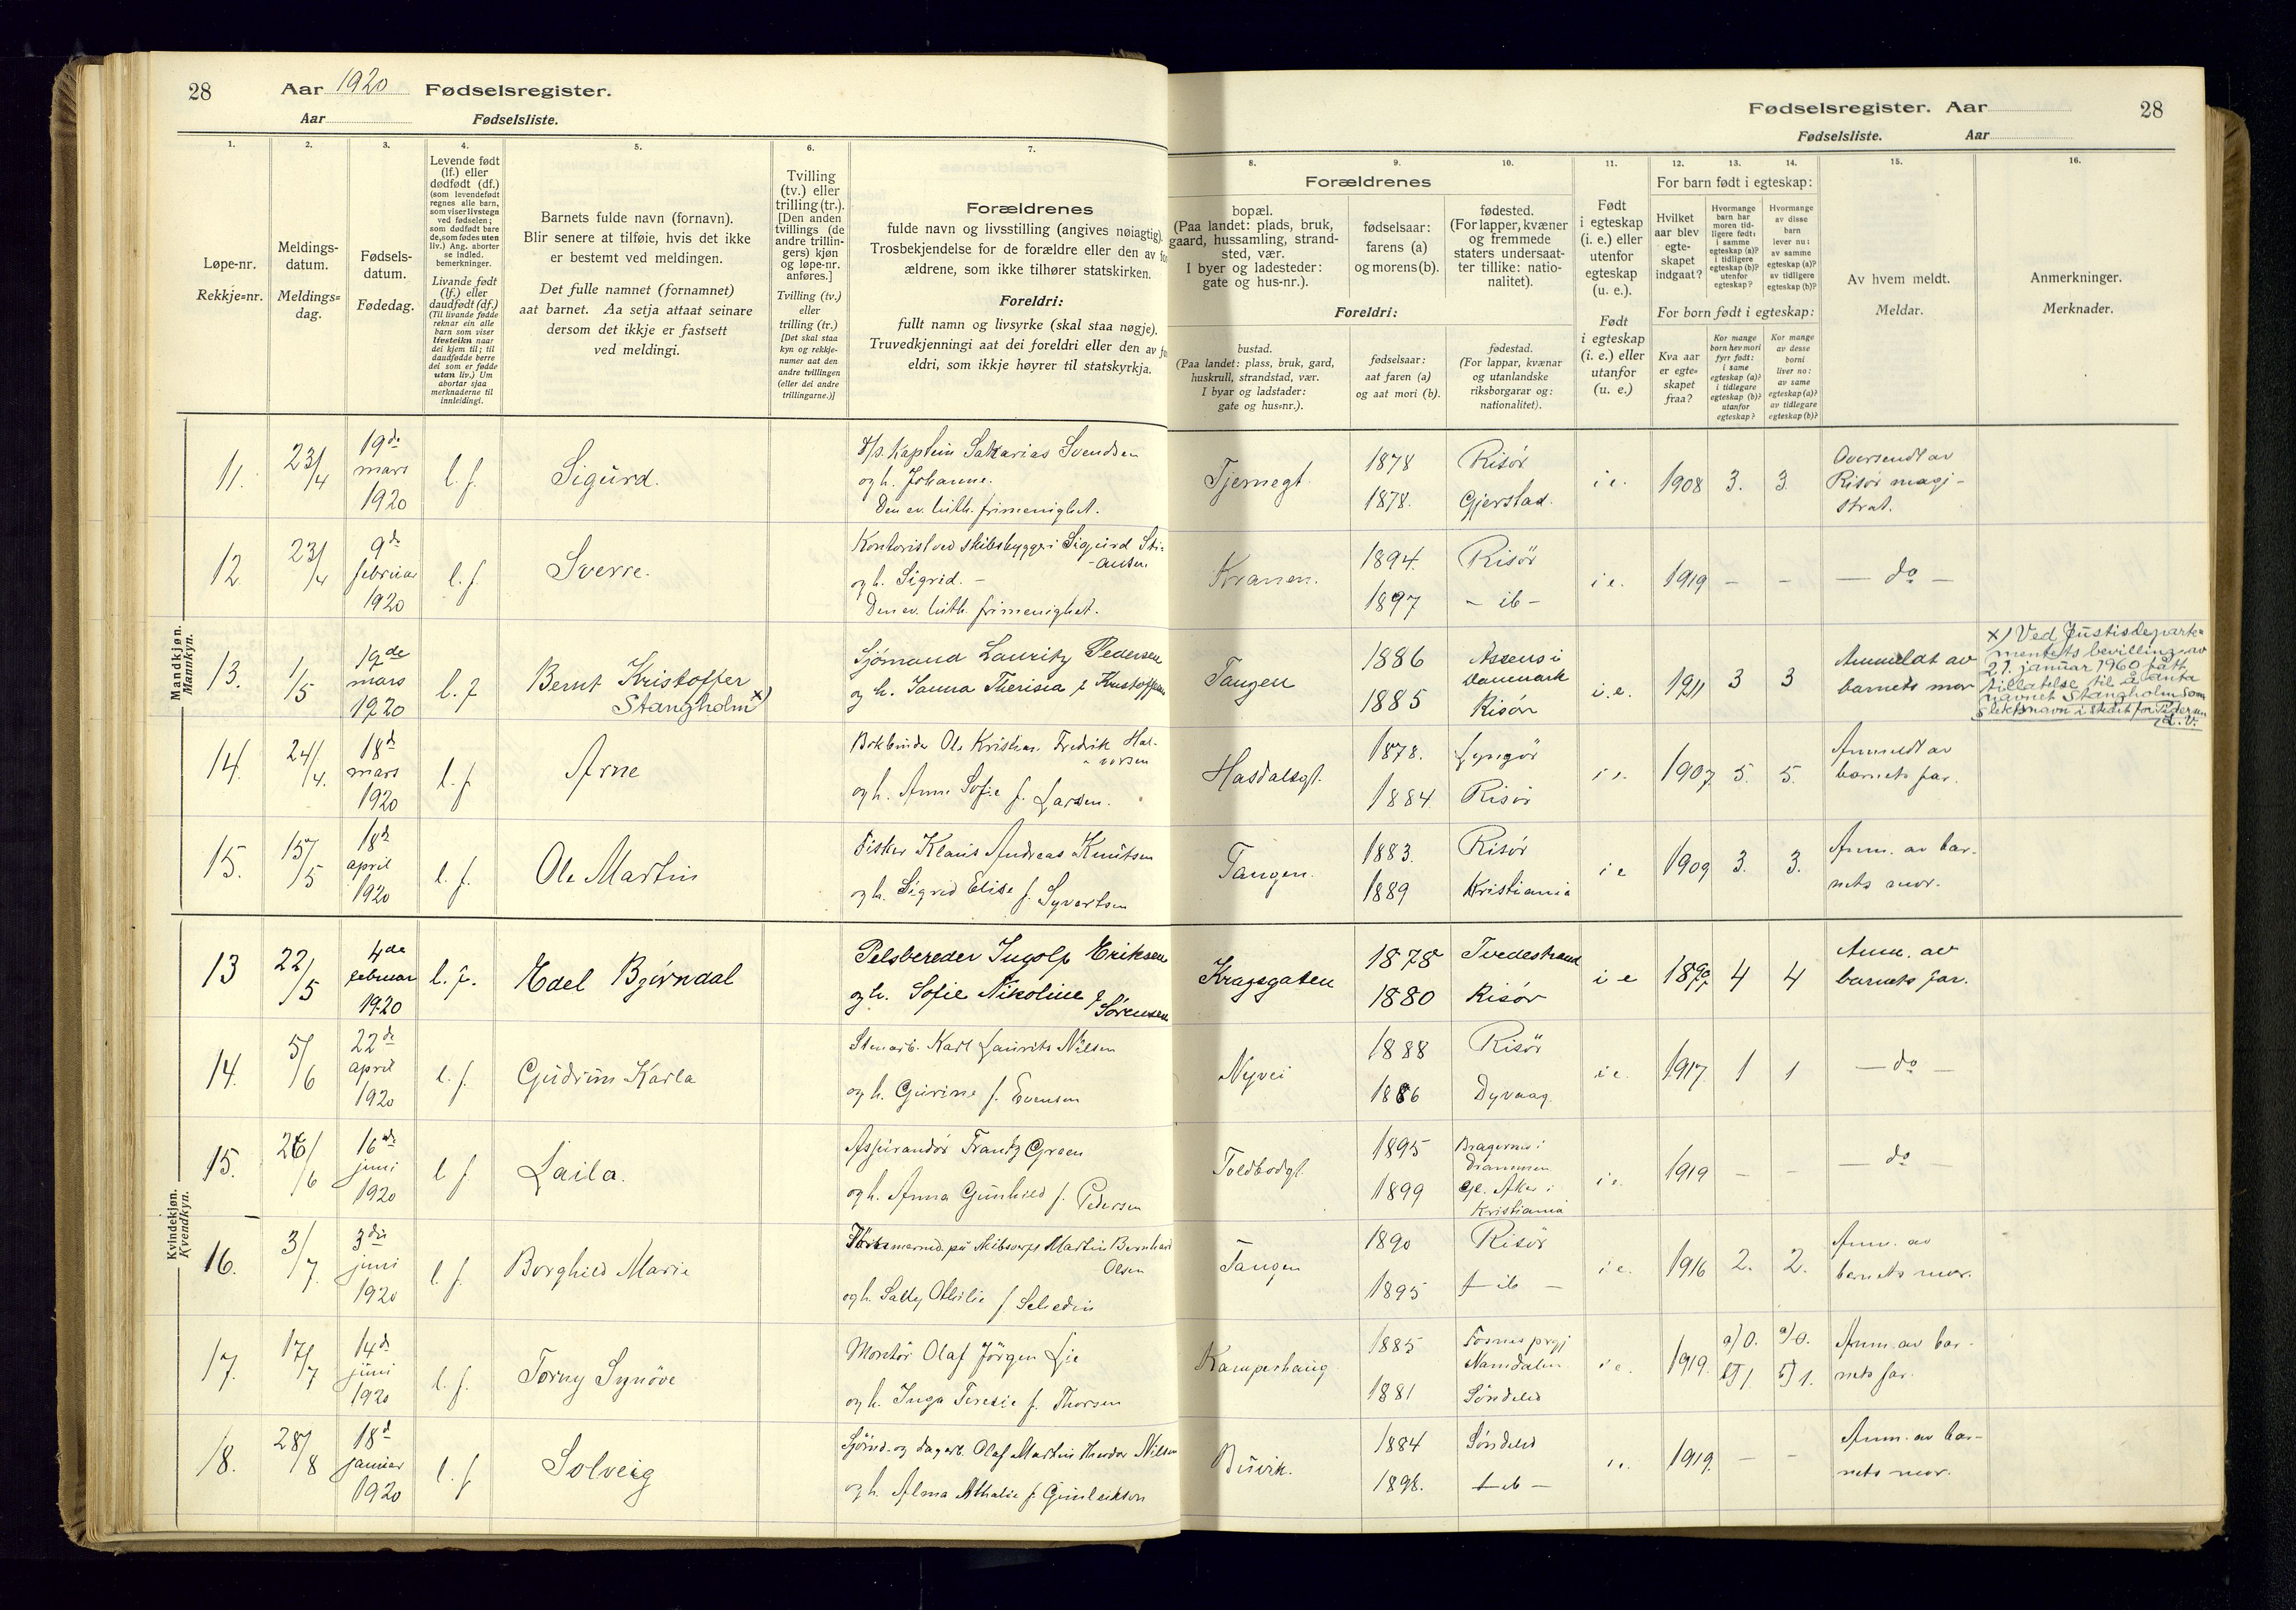 28 Aar 1920 Fødselsregister.
Aar Fødselsliste.
Fødselsregister. Aar 28
Fødselsliste. Aar
1. 2. 3. 4. 5. 6. 7.
Løpe-nr.
Rekkje=nr.
Meldings-
datum.
Meldings=
dag.
Fødsels-
datum.
Fødedag.
Levende født
(lf.) eller
dødfødt (df.)
(som levendefødt
regnes alle barn,
som viser livstegn
ved fødselen;
som dødfødt bare
de, som fødes uten
liv.) Ang. aborter
se indled.
bemerkninger.
Livande født
(lf.) eller
daudfødt (df.)
(Til livande fødde
reknar ein alle
barn som viser
livsteikn naar
dei kjem til; til
daudfødde berre
dei som er fødde
utan liv.) Um
abortar sjaa
merknaderne til
innleidingi.
Barnets fulde navn (fornavn).
Blir senere at tilføie, hvis det ikke
er bestemt ved meldingen.
Det fulle namnet (fornamnet)
aat barnet. Aa setja attaat seinare
dersom det ikkje er fastsett
ved meldingi.
Tvilling
(tv.) eller
trilling (tr.).
[Den anden
tvillings (de
andre trillin-
gers) kjøn
og løpe-nr.
anføres.]
Tvilling (tv.)
eller
trilling (tr.)
[Det skal staa
kyn og rekkje-
numer aat den
andre tvillingen
(eller dei andre
trillingarne.)]
Forældrenes
fulde navn og livsstilling (angives nøiagtig).
Trosbekjendelse for de forældre eller den av for
ældrene, som ikke tilhører statskirken.
Foreldri:
fullt namn og livsyrke (skal staa nøgje).
Truvedkjenningi aat dei foreldri eller den av
eldri, som ikkje høyrer til statskyrkja.
8. 9. 10. 11. 12. 13. 14. 15. 16.
Forældrenes
bopæl.
(Paa landet: plads, bruk,
gaard, hussamling, strand-
sted, vær.
I byer og ladesteder:
gate og hus-nr.).
fødselsaar:
farens (a)
og morens (b).
fødested.
(For lapper, kvæner
og fremmede
staters undersaat-
ter tillike: natio-
nalitet).
Foreldri:
bustad.
(Paa landet: plass, bruk, gard,
huskrull, strandstad, vær.
I byar og ladstader:
gate og hus=nr.).
fødselsaar:
aat faren (a)
og aat mori (b).
fødestad.
(For lappar, kvænar
og utanlandske
riksborgarar og:
nationalitet).
Født
i egteskap
(i. e.) eller
utenfor
egteskap
(u. e.).
Født
i egteskap
(i. e.) eller
utanfor
(u. e.)
For barn født i egteskap:
Hvilket
aar blev
egte-
skapet
indgaat?
Hvormange
barn har
moren tid-
ligere født:
i samme
egteskap (a)?
i tidligere
egteskap (b)?
utenfor
egteskap?
Hvormange
av disse
barn
lever nu:
av samme
egteskap (a)?
av tidligere
egteskap (b)?
For born født i egteskap:
Kva aar
er egte=
skapet
fraa?
Kor mange
born hev mori
fyrr født:
i same
egteskap (a)?
i tidlegare
egteskap (b)?
utanfor
egteskap?
Kor mange
av desse
borni
liver no:
av same
egteskap (a)?
av tidlegare
egteskap (b)?
Av hvem meldt.
Meldar.
Anmerkninger.
Merknader.
Mandkjøn.
Mannkyn.
11. 23/4 19de mars 1920 l. f. Sigurd.
D/s. Kaptein Sakarias Svendsen
og h. Johanne.
Den ev. luth. frimenighet.
Tjernegt. 1878 Risør i e. 1908 3. 3.
1878. Gjerstad.
Oversendt av
Risør magi-
strat.
12. 23/4 9de februar 1920 l. f. Sverre.
Kontorist ved skibsbyggeri Sigurd Sti-
-ansen
og h. Sigrid. –
Den ev. luth. frimenighet.
Kranen. 1894. Risör i e. 1919 – – — do —
1897 – ib –
13. 1/5 19de mars 1920 l. f. Bernt Kristoffer
Stangholm x)
Sjømand Lauritz Pedersen
og h. Janna Therisia f. Kristoffersen
Tangen 1886 Assens i
Danmark
1885 Risør i. e. 1911 3 3
Anmeldt av
barnets mor
x) Ved Justisdeparte=
mentets bevilling av
21. januar 1960 fått
tillatelse til å anta
navnet Stangholm som
slektsnavn i stedet for Pedersen
14. 24/4. 18d mars 1920 l. f. Arne
Bokbinder Ole Kristian Fredrik Hal-
vorsen
og h. Anne Sofie f. Larsen.
Hasdalsgt. 1878. Lyngör i e. 1907. 5. 5.
1884. Risör
Anmeldt av
barnets far.
15. 15/5 18d april 1920 l. f. Ole Martin
Fisker Klaus Andreas Knutsen
og h. Sigrid Elise f. Syvertsen
Tangen. 1883. Risör i e 1909 3. 3.
1889 Kristiania
Anm. av bar-
nets mor.
Kvindekjøn.
Kvendkyn.
13 22/5 4de februar 1920 l. f. Edel Bjørndal
Pelsbereder Ingolf Eriksen
og h. Sofie Nikoline f
Sørensen
Kragsgaten 1878 Tvedestrand i e 4 4
1880 Risør
Anm. av
barnets far.
14. 5/6 22de april 1920 l. f. Gudrun Karla
Stenarb. Karl Laurits Nilsen
og h. Gurine f. Evensen
Nyvei 1888 Risör i e. 1917. 1 1 — do —
1886 Dyvaag.
15. 26/6 16de juni 1920 l f. Laila.
Aspirandör Frantz Green
og h. Anna Gunhild f. Pedersen
Toldbodgt. 1895 Bragernes i
Drammen
1899 Gl. Aker i
Kristiania
i e. 1919 – – — do
16. 3/7. 3die juni 1920 l. f. Borghild Marie
Martin Bernhard
Olsen
og h. Sally Othilie f. Schedin
Tangen 1890 Risör i e. 1916 2. 2.
1895 – ib –
Anm. av
barnets mor.
17. 17/7 14de juni 1920 l. f. Torny Synöve
Montör Olaf Jörgen Lie
og h. Inga Teresie f. Thorsen
Kamperhaug 1885 Fosnes prgj
Namdalen
1881 Söndeled
i e. 1919. a) 0. a) 0.
b) 1. b) 1.
Anm. av bar-
nets far.
18. 28/8 18d januar 1920 l. f. Solveig
Sjömd. og dagarb. Olaf Martin Theodor Nilsen
og h. Alma Athalie f. Gunleikson
Buvik. 1884 Söndeled 1919. – –
1898. – ib –
Anm. av bar-
nets mor.